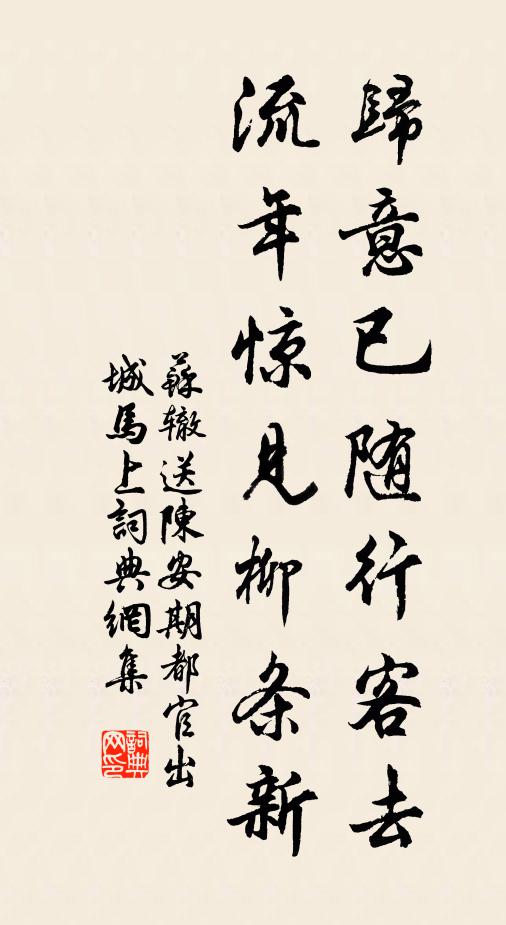 歸意已随行客去
流年惊見柳条新
蘇辙送陳安期都官出
城馬上詞典網集
詞典
网印